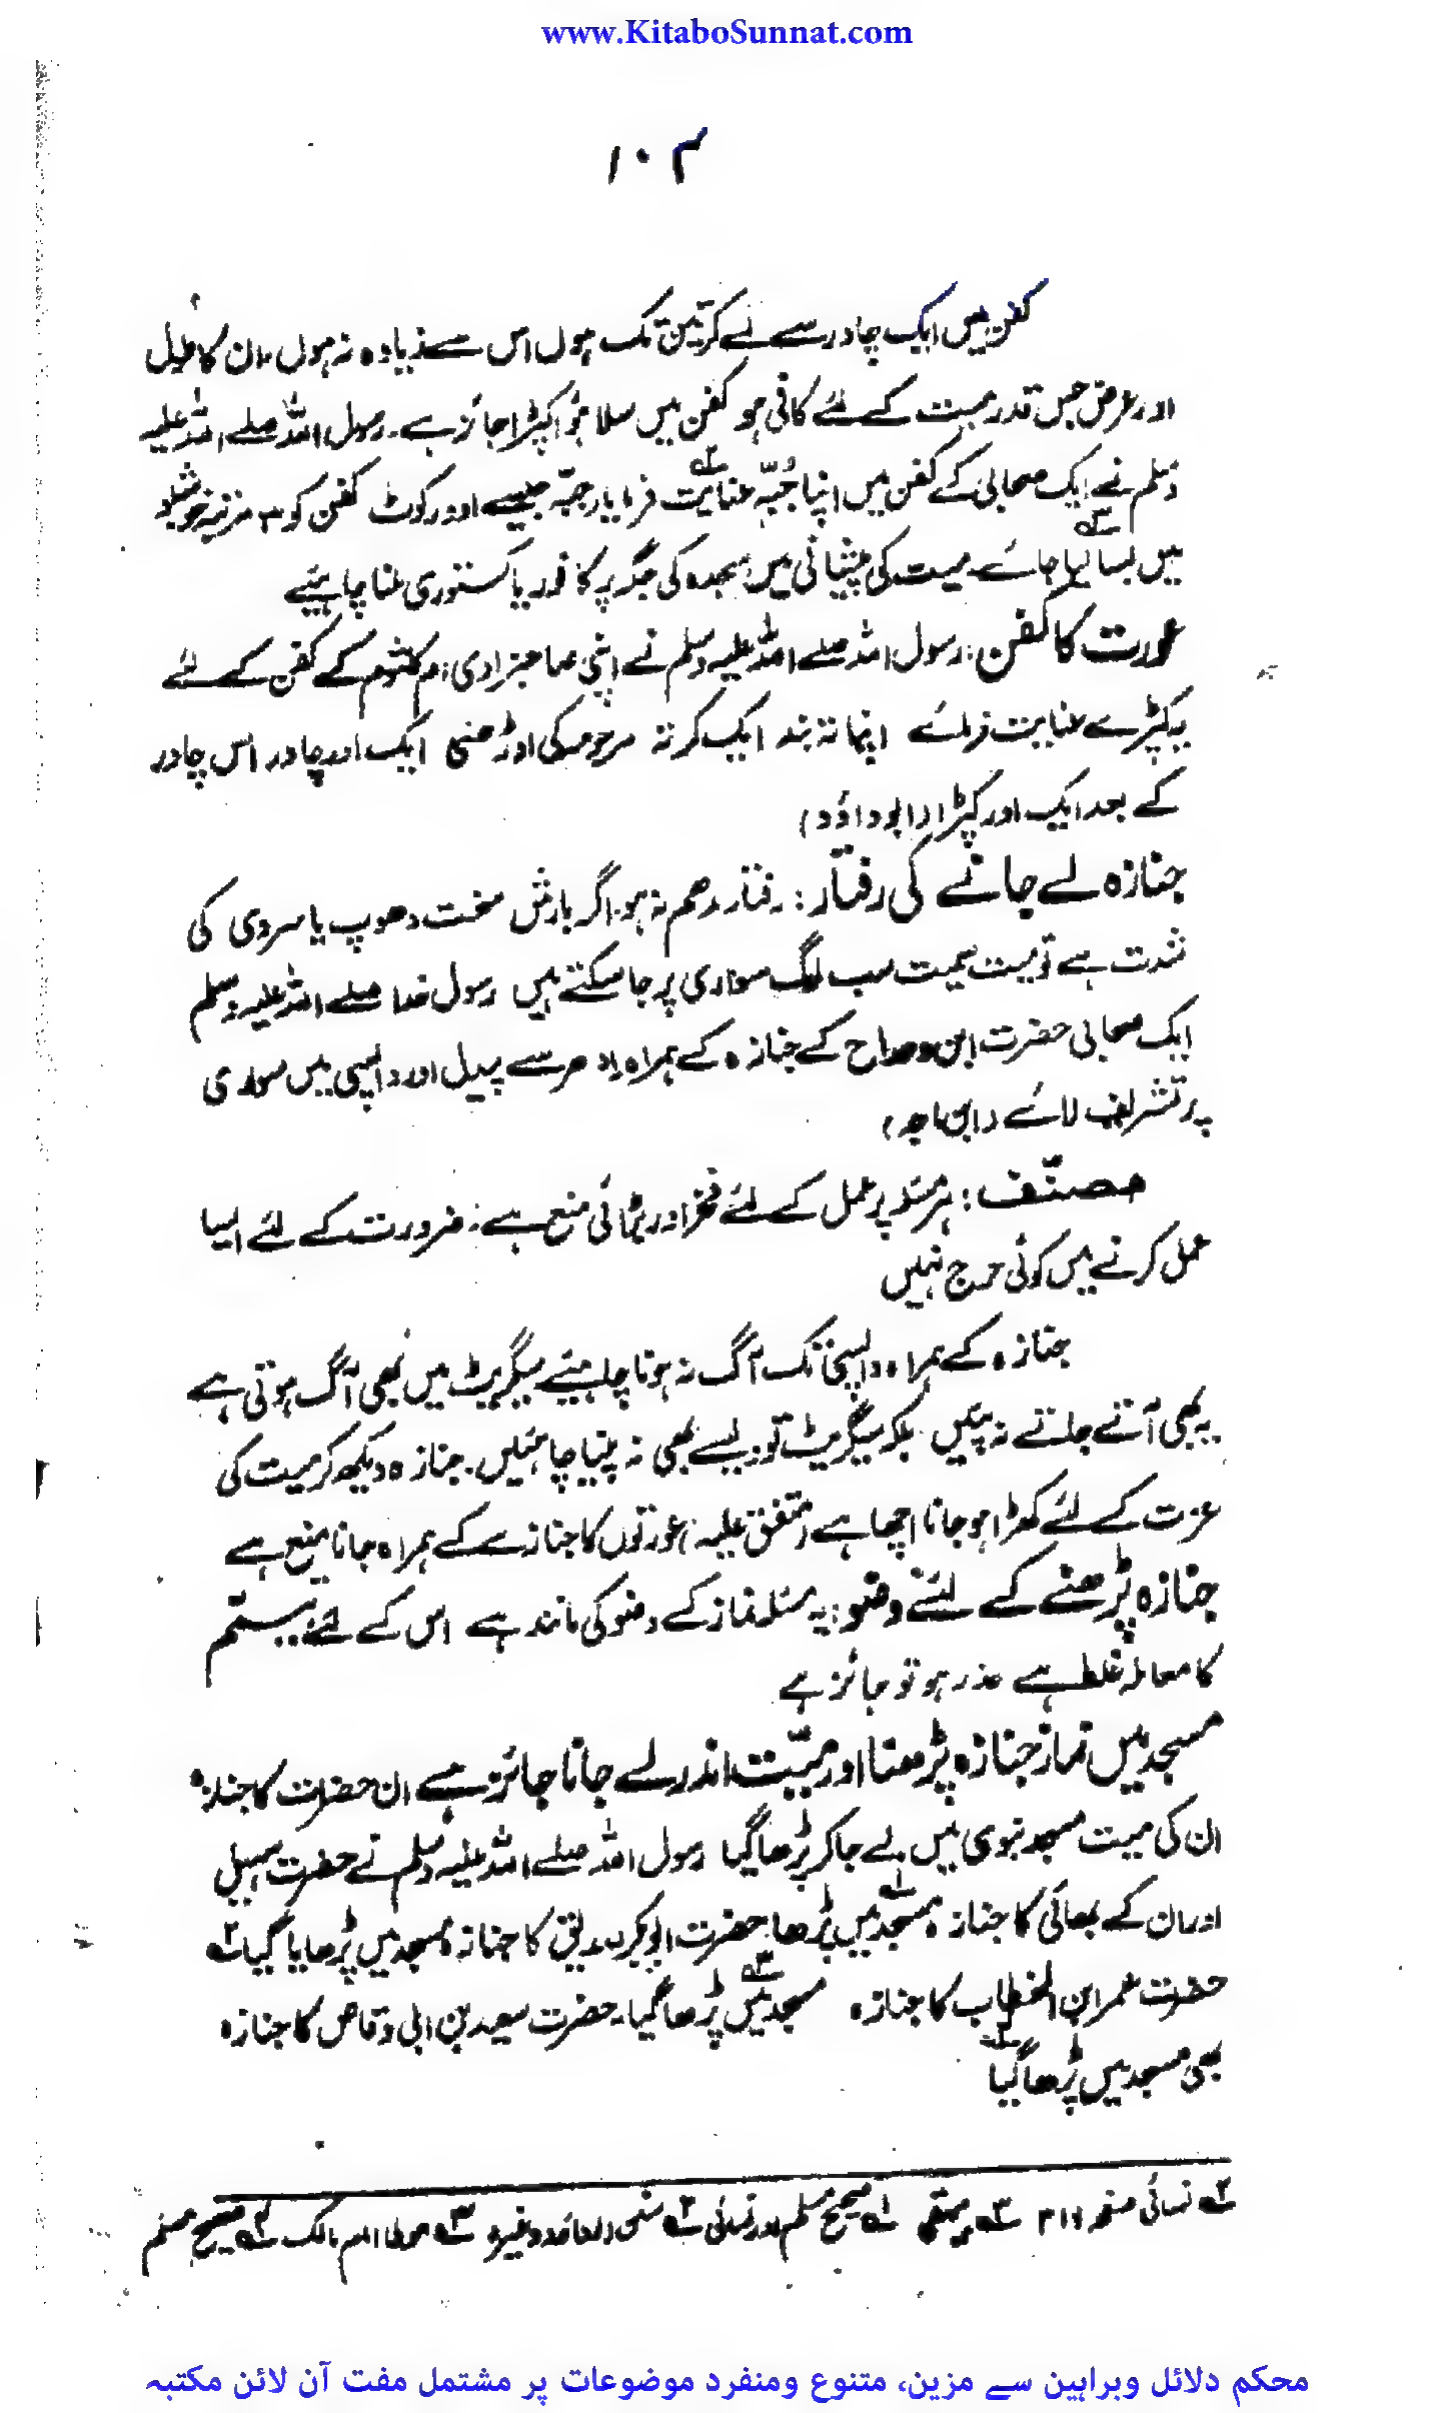 www.KitaboSunnat.com
۱۰۲
کفن میں ایک چادر سے لے کر تین تک ہوں اس سے زیادہ نہ ہوں ان کا طول
اور عرض جس قدر میت کے لئے کافی ہو کفن میں سلا ہؤا کپڑا جائز ہے۔ رسول اللہ صلے اللہ علیہ
وسلم نے ایک صحابی کے کفن میں اپنا جُبّہ عنایت فرمایا جبّہ جیسے اوورکوٹ کفن کو ۳ مرتبہ خوشبو
میں بسا لیا جائے میت کی پیشانی میں سجدہ کی جگہ پر کافور یا کستوری ملنا چاہیئے
عورت کا کفن: رسول اللہ صلے اللہ علیہ وسلم نے اپنی صاحبزادی ام کلثوم کے کفن کے لئے
یہ کپڑے عنایت فرمائے اپنا تہ بند ایک کرتہ مرحومہ کی اوڑھنی ایک اور چادر اس چادر
کے بعد ایک اور کپڑا (ابو داؤد)
جنازہ لے جانے کی رفتار: رفتار مدھم نہ ہو اگر بارش سخت دھوپ یا سردی کی
شدت ہے تو میت سمیت سب لوگ سواری پر جا سکتے ہیں رسول خدا صلے اللہ علیہ وسلم
ایک صحابی حضرت ابن دحداح کے جنازہ کے ہمراہ ادھر سے پیدل اور واپسی میں سواری
پر تشریف لائے (ابن ماجہ)
مصنّف: ہر مسئلہ پر عمل کے لئے فخر اور بڑائی منع ہے۔ ضرورت کے لئے ایسا
عمل کرنے میں کوئی حرج نہیں
جنازہ کے ہمراہ واپسی تک آگ نہ ہونا چاہیئے سیگریٹ میں بھی آگ ہوتی ہے
یہ بھی آتے جاتے نہ پئیں بلکہ سیگریٹ تو ویسے بھی نہ پینا چاہئیں۔ جنازہ دیکھ کر میت کی
عزت کے لئے کھڑا ہو جانا اچھا ہے (متفق علیہ) عورتوں کا جنازے کے ہمراہ جانا منع ہے
جنازہ پڑھنے کے لئے وضو: یہ مسئلہ نماز کے وضو کی مانند ہے اس کے لئے تیمم
کا معاملہ غلط ہے عذر ہو تو جائز ہے
مسجد میں نماز جنازہ پڑھنا اور میّت اندر لے جانا جائز ہے ان حضرات کا جنازہ
ان کی میت مسجد نبوی میں لے جا کر پڑھا گیا رسول اللہ صلے اللہ علیہ وسلم نے حضرت سہیل
اور ان کے بھائی کا جنازہ مسجد میں پڑھا۱ حضرت ابوبکر صدیق کا جنازہ مسجد میں پڑھایا گیا۲
حضرت عمر ابن الخطاب کا جنازہ مسجد میں۳ پڑھا گیا۔ حضرت سعد بن ابی وقاص کا جنازہ
بھی مسجد میں پڑھا گیا۴
۲ نسائی صفحہ ۲۱۱ ۳ بیہقی ۱ صحیح مسلم اور نسائی ۲ سنن وغیرہ ۳ موطا امام مالک ۴ صحیح مسلم
محکم دلائل وبراہین سے مزین، متنوع ومنفرد موضوعات پر مشتمل مفت آن لائن مکتبہ